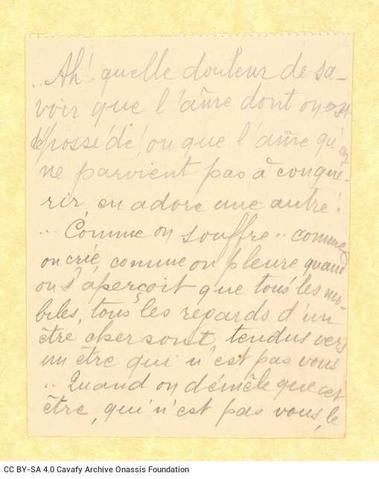 ..Ah! quelle douleur de sa-
voir que l'âme dont on est
dépossédé, ou que l'âme qu'on
ne parvient pas à conqué-
rir, en adore une autre!
.. Comme on souffre.. comme
on crie, comme on pleure quand
on s'aperçoit que tous les mo-
biles, tous les regards d'un
être cher sont tendus vers
un être qui n'est pas vous
.. Quand on démêle que cet
être, qui n'est pas vous, le
CC BY-SA 4.0 Cavafy Archive Onassis Foundation